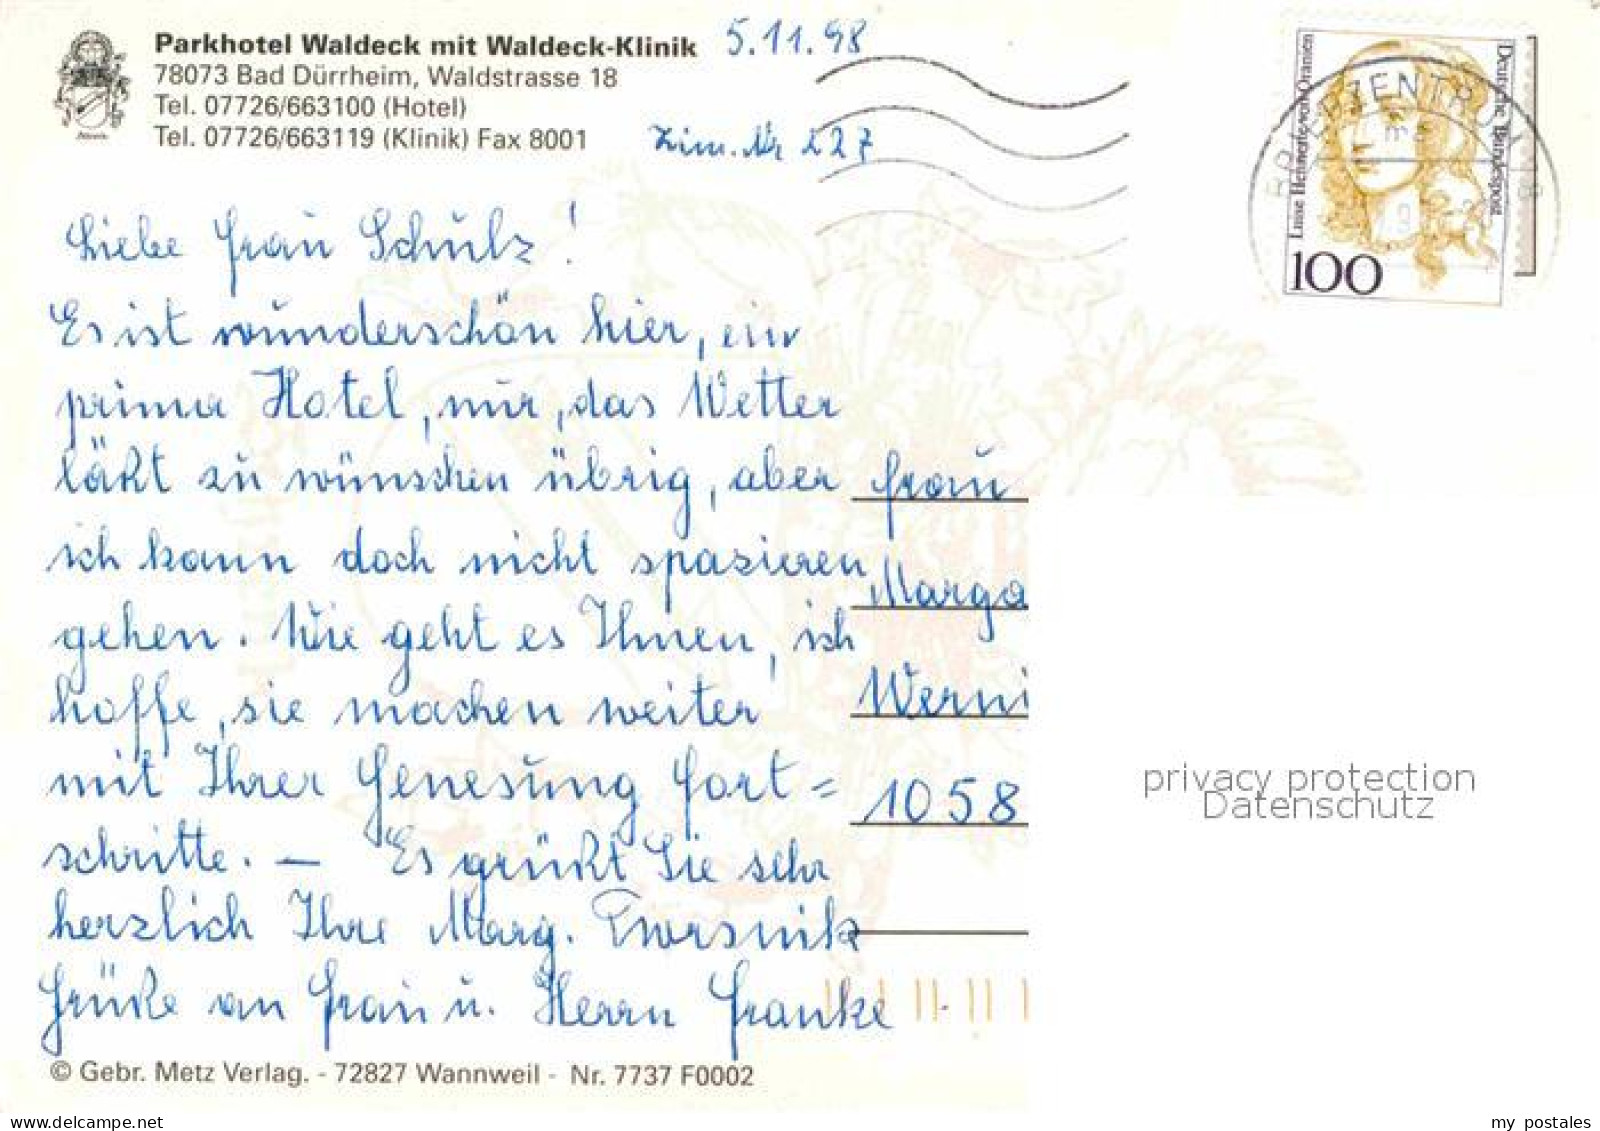 Parkhotel Waldeck mit Waldeck-Klinik
78073 Bad Dürrheim, Waldstrasse 18
Tel. 07726/663100 (Hotel)
Tel. 07726/663119 (Klinik) Fax 8001
5.11.98
Zim.Nr 227
Liebe Frau Schulz!
Es ist wunderschön hier, ein
prima Hotel, nur, das Wetter
läßt zu wünschen übrig, aber
ich kann doch nicht spazieren
gehen. Wie geht es Ihnen, ich
hoffe, sie machen weiter
mit Ihrer Genesung Fort=
schritte. — Es grüßt Sie sehr
herzlich Ihre Marg.
Grüße an Frau u. Herrn Franke
© Gebr. Metz Verlag. - 72827 Wannweil - Nr. 7737 F0002
Deutsche Bundespost
Luise Henriette von Oranien
100
Frau
Marga
Werni
1058
privacy protection
Datenschutz
www.delcampe.net
my_postales